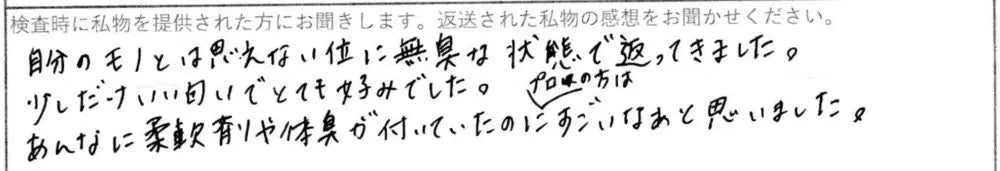 検査時に私物を提供された方にお聞きします。返送された私物の感想をお聞かせください。
自分のモノとは思えない位に無臭な状態で返ってきました。
少しだけいい匂いでとても好みでした。
プロの方は
あんなに柔軟剤や体臭が付いていたのにすごいなぁと思いました。